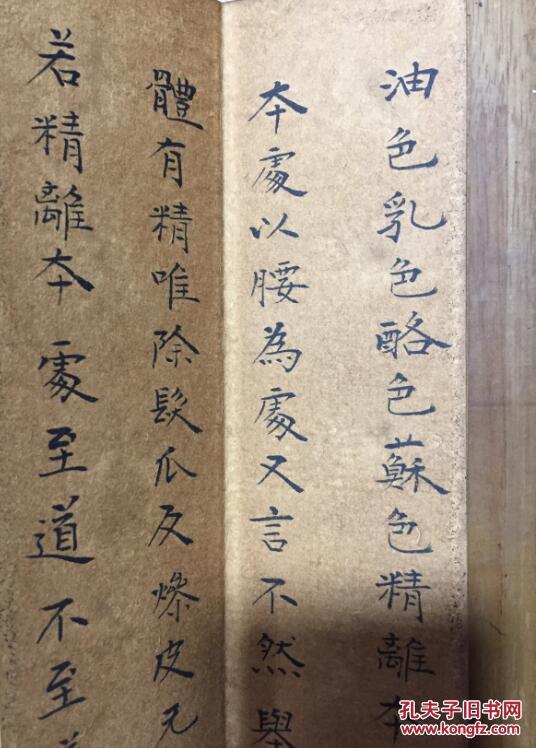 油色乳色酪色蘇色精離本
本處以腰為處又言不然舉
體有精唯除髮爪及燥皮无
若精離本處至道不至道
孔夫子旧书网
www.kongfz.com